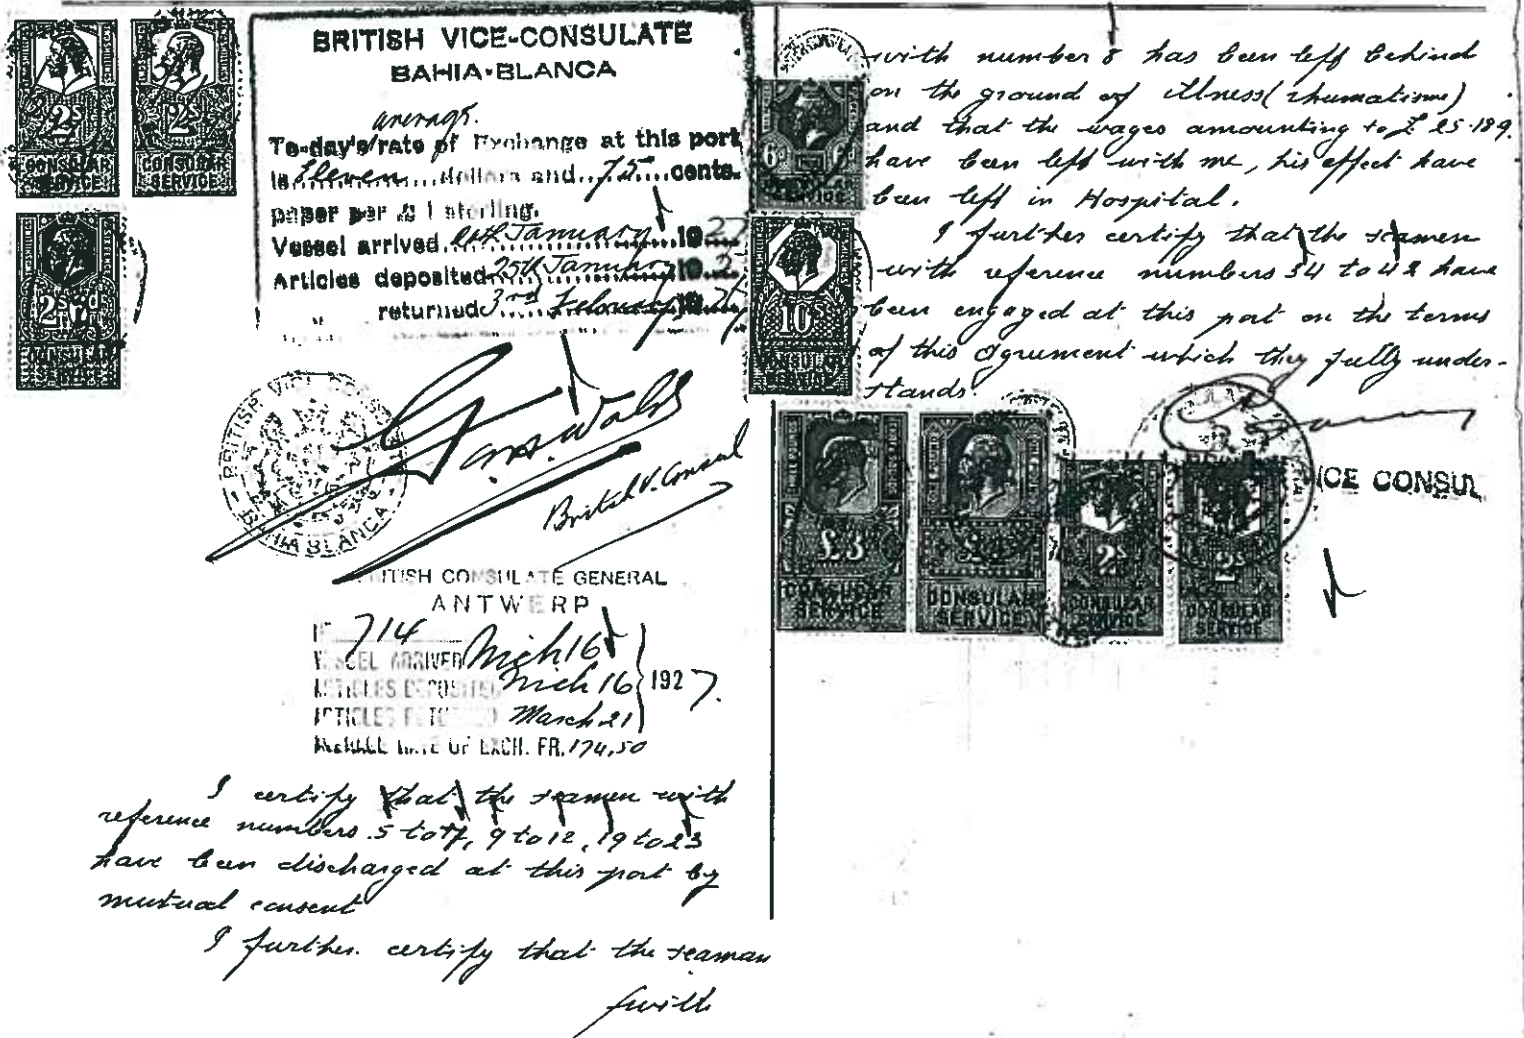 BRITISH VICE-CONSULATE
BAHIA-BLANCA
average
To-day's rate of Exchange at this port
is Eleven dollars and 75 cents.
paper per £ 1 sterling.
Vessel arrived January 1927
Articles deposited 25th January 192
returned 3rd February 1927
British V. Consul
BRITISH VICE CONSULATE
BAHIA BLANCA
2s
CONSULAR
SERVICE
2s
CONSULAR
SERVICE
CONSULAR
SERVICE
BRITISH CONSULATE GENERAL
ANTWERP
714
VESSEL ARRIVED Mch 16
ARTICLES DEPOSITED Mch 16 1927.
ARTICLES RETURNED March 21
AVERAGE RATE OF EXCH. FR. 174,50
I certify that the seamen with
reference numbers 5 to 7, 9 to 12, 19 to 23
have been discharged at this port by
mutual consent
I further certify that the seaman
/with
with number 8 has been left behind
on the ground of illness (rhumatisme)
and that the wages amounting to £ 25-18-9.
have been left with me, his effect have
been left in Hospital.
I further certify that the seamen
with reference numbers 34 to 42 have
been engaged at this port on the terms
of this agrument which they fully under-
stands.
VICE CONSUL
6d
CONSULAR
SERVICE
10s
CONSULAR
SERVICE
THREE POUNDS
£3
CONSULAR
SERVICE
CONSULAR
SERVICE
2s
CONSULAR
SERVICE
2s
CONSULAR
SERVICE